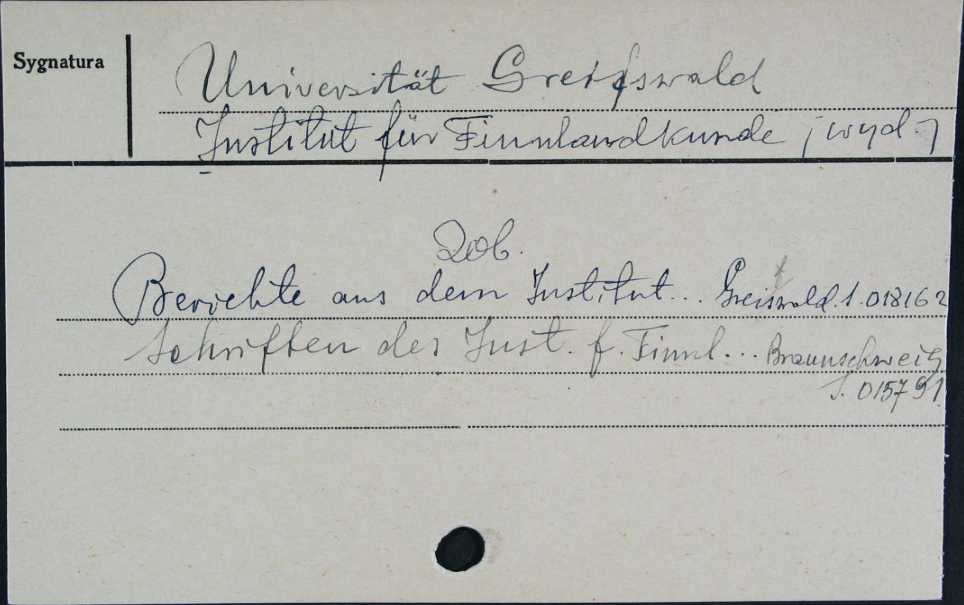 Sygnatura
Universität Greifswald
Institut für Finnlandkunde ; wyd.
Zob.
Berichte aus dem Institut... Greifswald. 1. 018162
Schriften des Inst. f. Finnl... Braunschweig
J. 015791